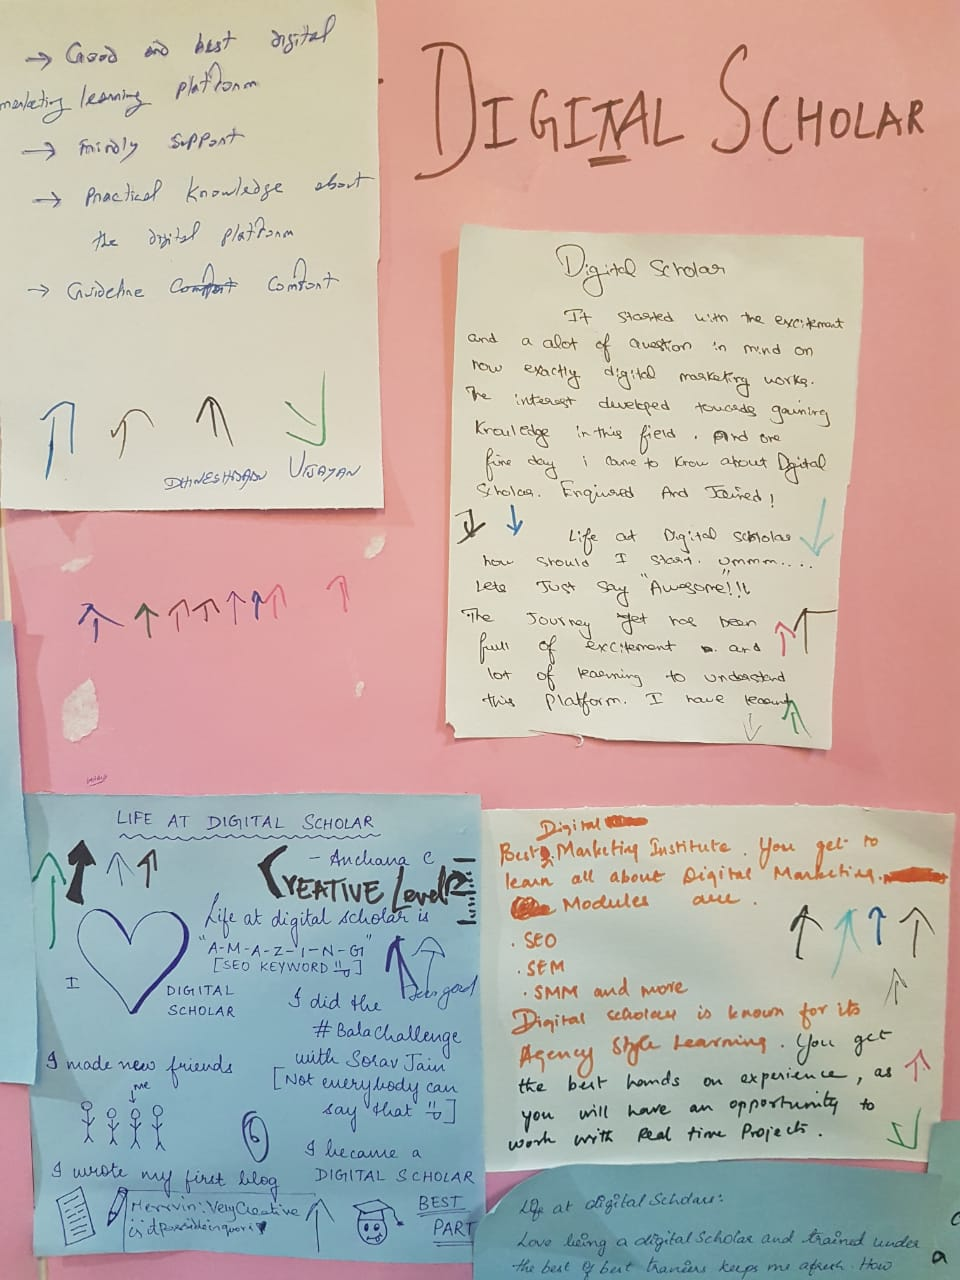 → Good and best digital
marketing learning platform
→ Frindly support
→ Practical knowledge about
the digital platform
→ Guideline Comfort
DHINESHBABU VIJAYAN
DIGITAL SCHOLAR
Digital Scholar
It started with the excitement
and a alot of question in mind on
how exactly digital marketing works.
The interest developed towards gaining
Knowledge in this field. And one
fine day i came to know about Digital
Scholar. Enqiured And Joined!
Life at Digital Scholar
how should I start. Ummm....
Lets Just say "Awesome!!!
The Journey yet has been
full of excitement and
lot of learning to understand
this Platform. I have learnt
LIFE AT DIGITAL SCHOLAR
- Anchana C
CREATIVE Level
Life at digital scholar is
"A-M-A-Z-I-N-G"
[SEO KEYWORD ]
I
DIGITAL
SCHOLAR
I did the
#BalaChallenge
with Sorav Jain
[Not everybody can
say that ]
I made new friends
me
I became a
DIGITAL SCHOLAR
I wrote my first blog
Mervin: Very Creative
BEST
PART
Digital
Best Marketing Institute. You get to
learn all about Digital Marketing.
Modules are.
. SEO
. SEM
. SMM and more
Digital scholar is known for its
Agency Style Learning. You get
the best hands on experience, as
you will have an opportunity to
work with Real time Projects.
Life at digital Scholars:
Love being a digital Scholar and trained under
the best of best trainers keeps me afresh. How